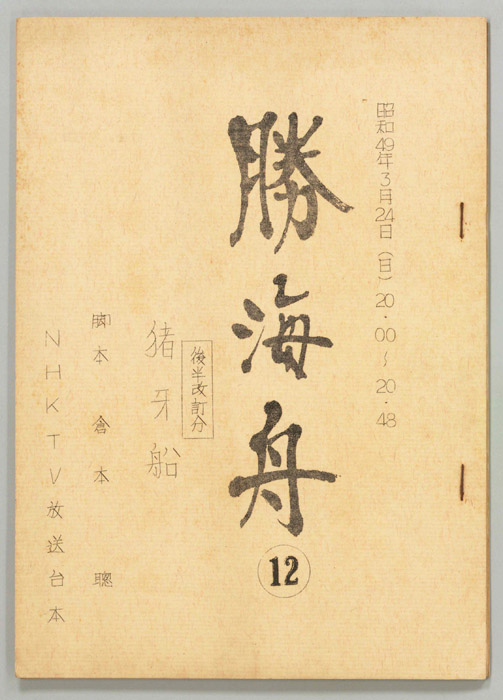 昭和49年3月24日(日)20・00〜20・48
勝海舟
12
後半改訂分
猪牙船
脚本 倉本 聰
NHKTV放送台本